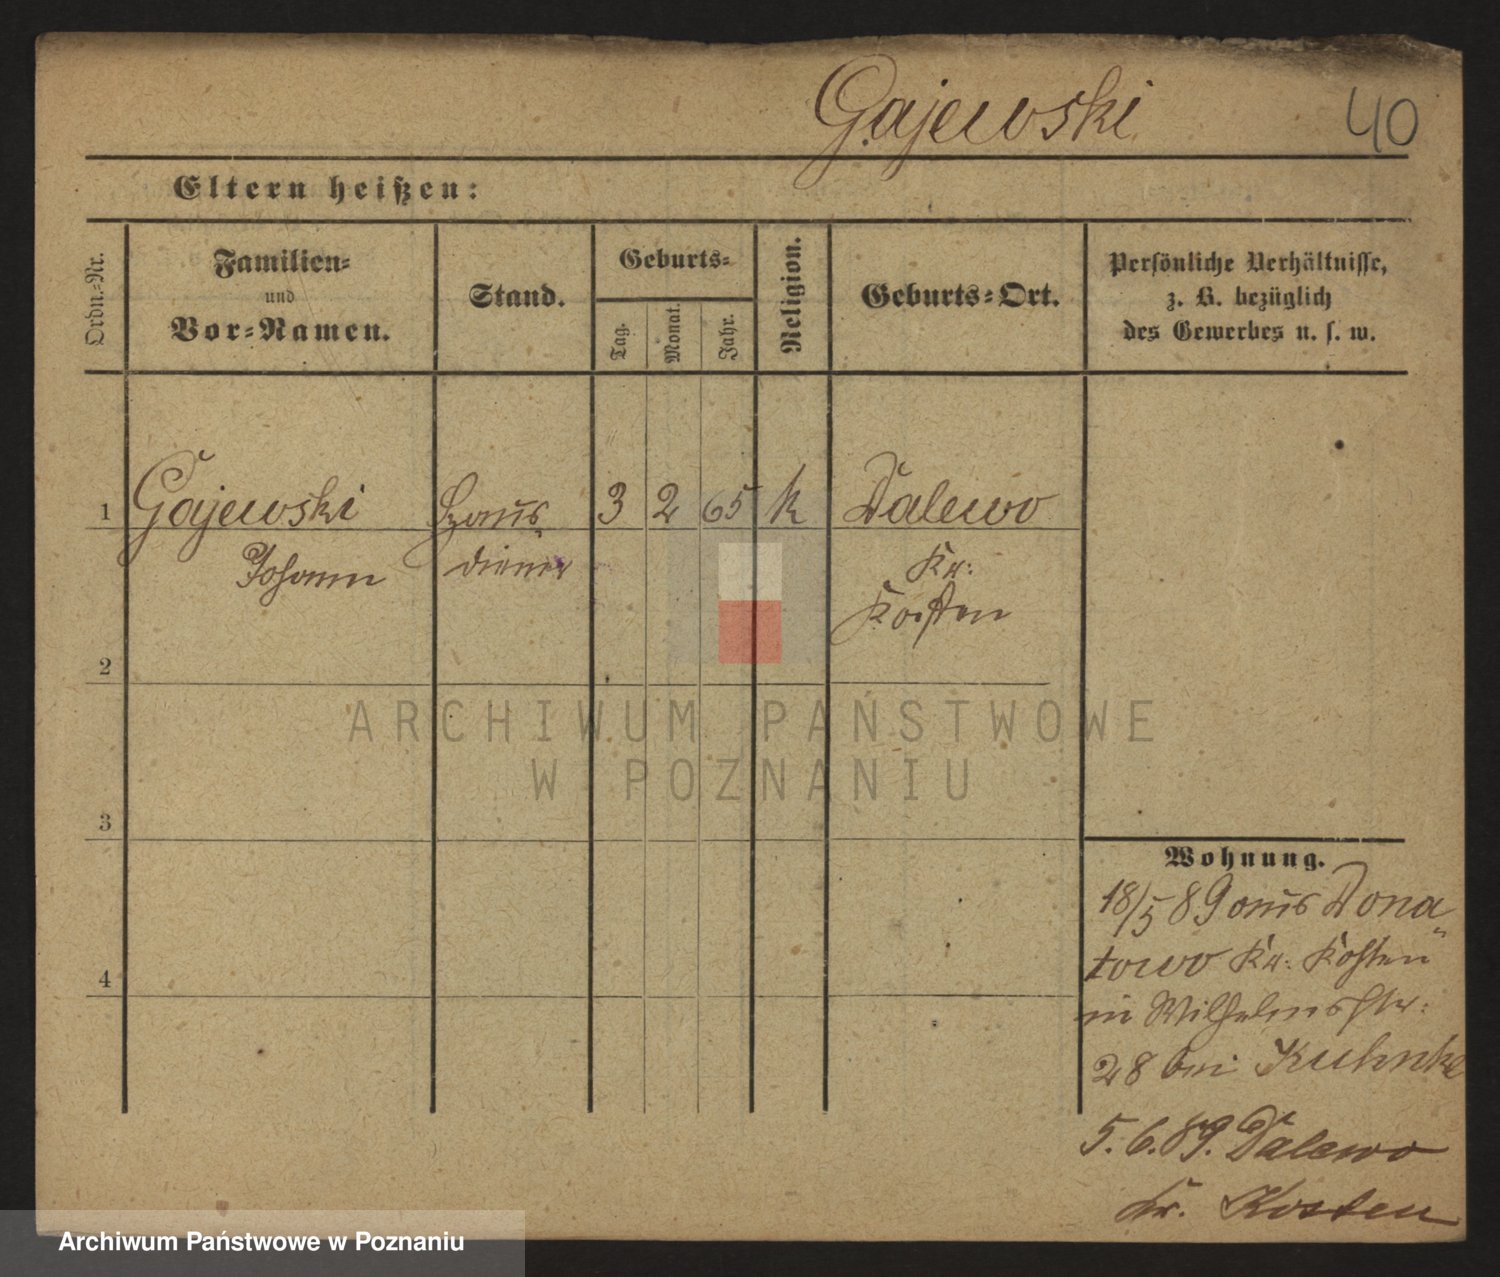 Gajewski 40
Eltern heißen:
Ordn.-Nr.
Familien-
und
Vor-Namen.
Stand.
Geburts-
Tag.
Monat.
Jahr.
Religion.
Geburts-Ort.
Persönliche Verhältnisse,
z. B. bezüglich
des Gewerbes u. s. w.
1 Gajewski Haus- 3 2 65 k Dalewo
Johann diener Kr:
Kosten
2
ARCHIWUM PAŃSTWOWE
W POZNANIU
3
4
Wohnung.
18/5 89 aus Dona-
towo Kr: Kosten
in Wilhelmsstr:
28 bei Kuhnke
5.6.89. Dalewo
Kr. Kosten
Archiwum Państwowe w Poznaniu